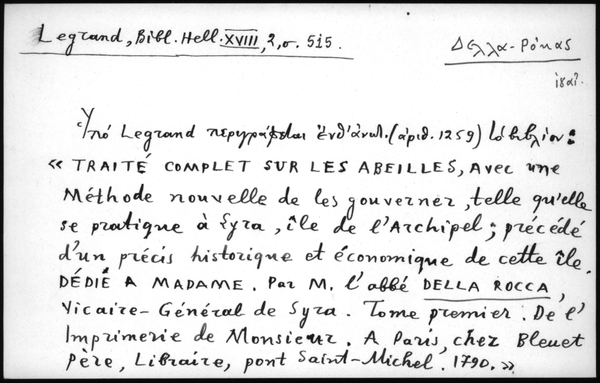 Legrand, Bibl. Hell. XVIII, 2, σ. 515.
Δελλα-Ρόκας
Ὑπό Legrand περιγράφεται ἐνθ' ἀνωτ. (ἀριθ. 1259) τό βιβλίον:
« TRAITÉ COMPLET SUR LES ABEILLES, Avec une
Méthode nouvelle de les gouverner, telle qu'elle
se pratique à Syra, île de l'Archipel; précédé
d'un précis historique et économique de cette île.
DÉDIÉ A MADAME. Par M. l'abbé DELLA ROCCA,
Vicaire-Général de Syra. Tome premier. De l'
Imprimerie de Monsieur. A Paris, chez Bleuet
Père, Libraire, pont Saint-Michel. 1790. »